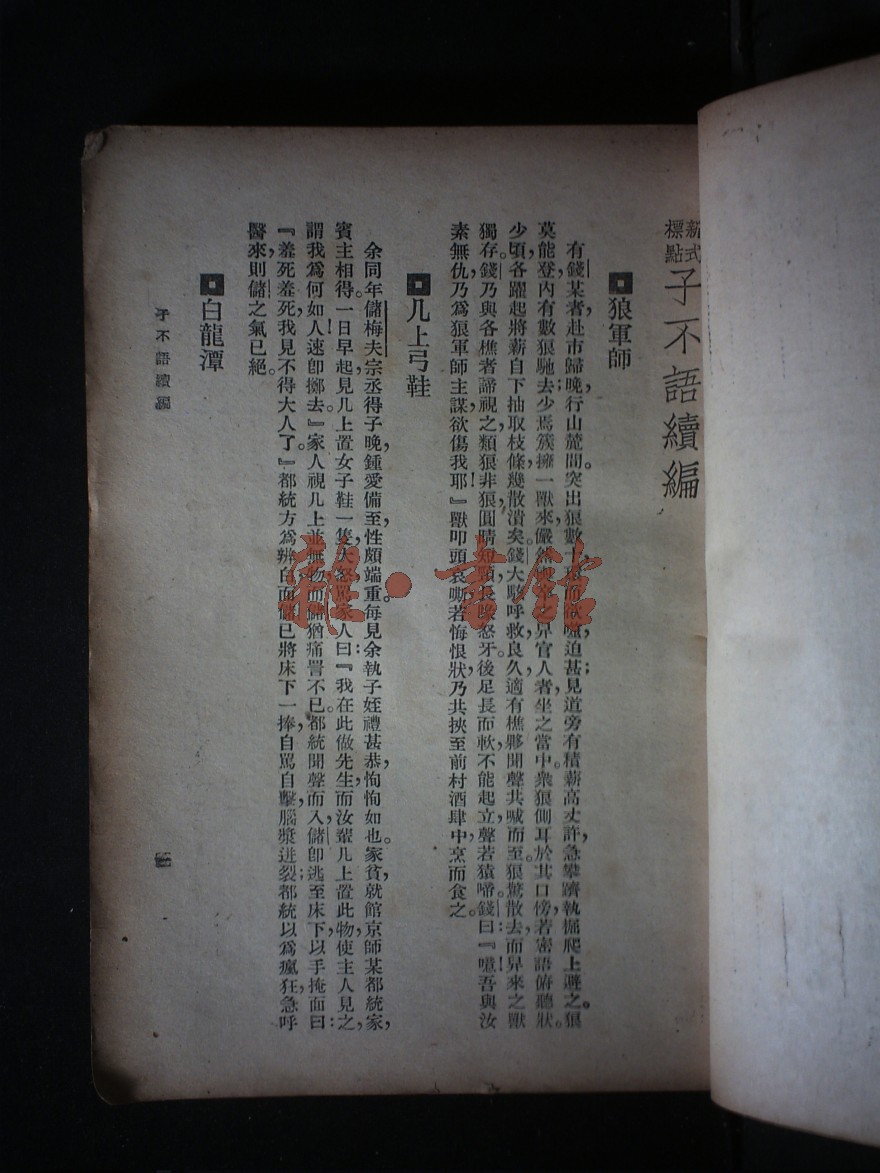 新式標點 子不語續編
狼軍師
有錢某者,赴市歸晚,行山麓間。突出狼數十,環而欲噬,迫甚;見道旁有積薪高丈許,急攀躋執掘爬上避之。狼
莫能登,內有數狼馳去,少焉簇擁一獸來,儼然舁官人者,坐之當中。衆狼側耳於其口傍,若密語俯聽狀。
少頃,各躍起,將薪自下抽取,枝條幾散潰矣。錢大駭呼救。良久,適有樵夥聞聲共喊而至。狼驚散去,而舁來之獸
獨存。錢乃與各樵者諦視之,類狼非狼,圓睛短頸,長喙怒牙。後足長而軟,不能起立,聲若猿啼。錢曰:『噫!吾與汝
素無仇,乃爲狼軍師主謀,欲傷我耶!』獸叩頭哀嘶,若悔恨狀,乃共挾至前村酒肆中,烹而食之。
几上弓鞋
余同年儲梅夫宗丞得子晚,鍾愛備至,性頗端重,每見余執子姪禮甚恭,恂恂如也。家貧,就館京師某都統家,
賓主相得。一日早起,見几上置女子鞋一隻,大怒罵家人曰:『我在此做先生,而汝輩几上置此物,使主人見之,
謂我爲何如人!速卽擲去。』家人視几上並無物,而儲猶痛詈不已。都統聞聲而入,儲卽逃至床下,以手掩面曰:
『羞死羞死,我見不得大人了。』都統方爲辨白,而儲已將床下一捧,自罵自擊,腦漿迸裂;都統以爲瘋狂,急呼
醫來,則儲之氣已絕。
白龍潭
子不語續編
一
雜·書館